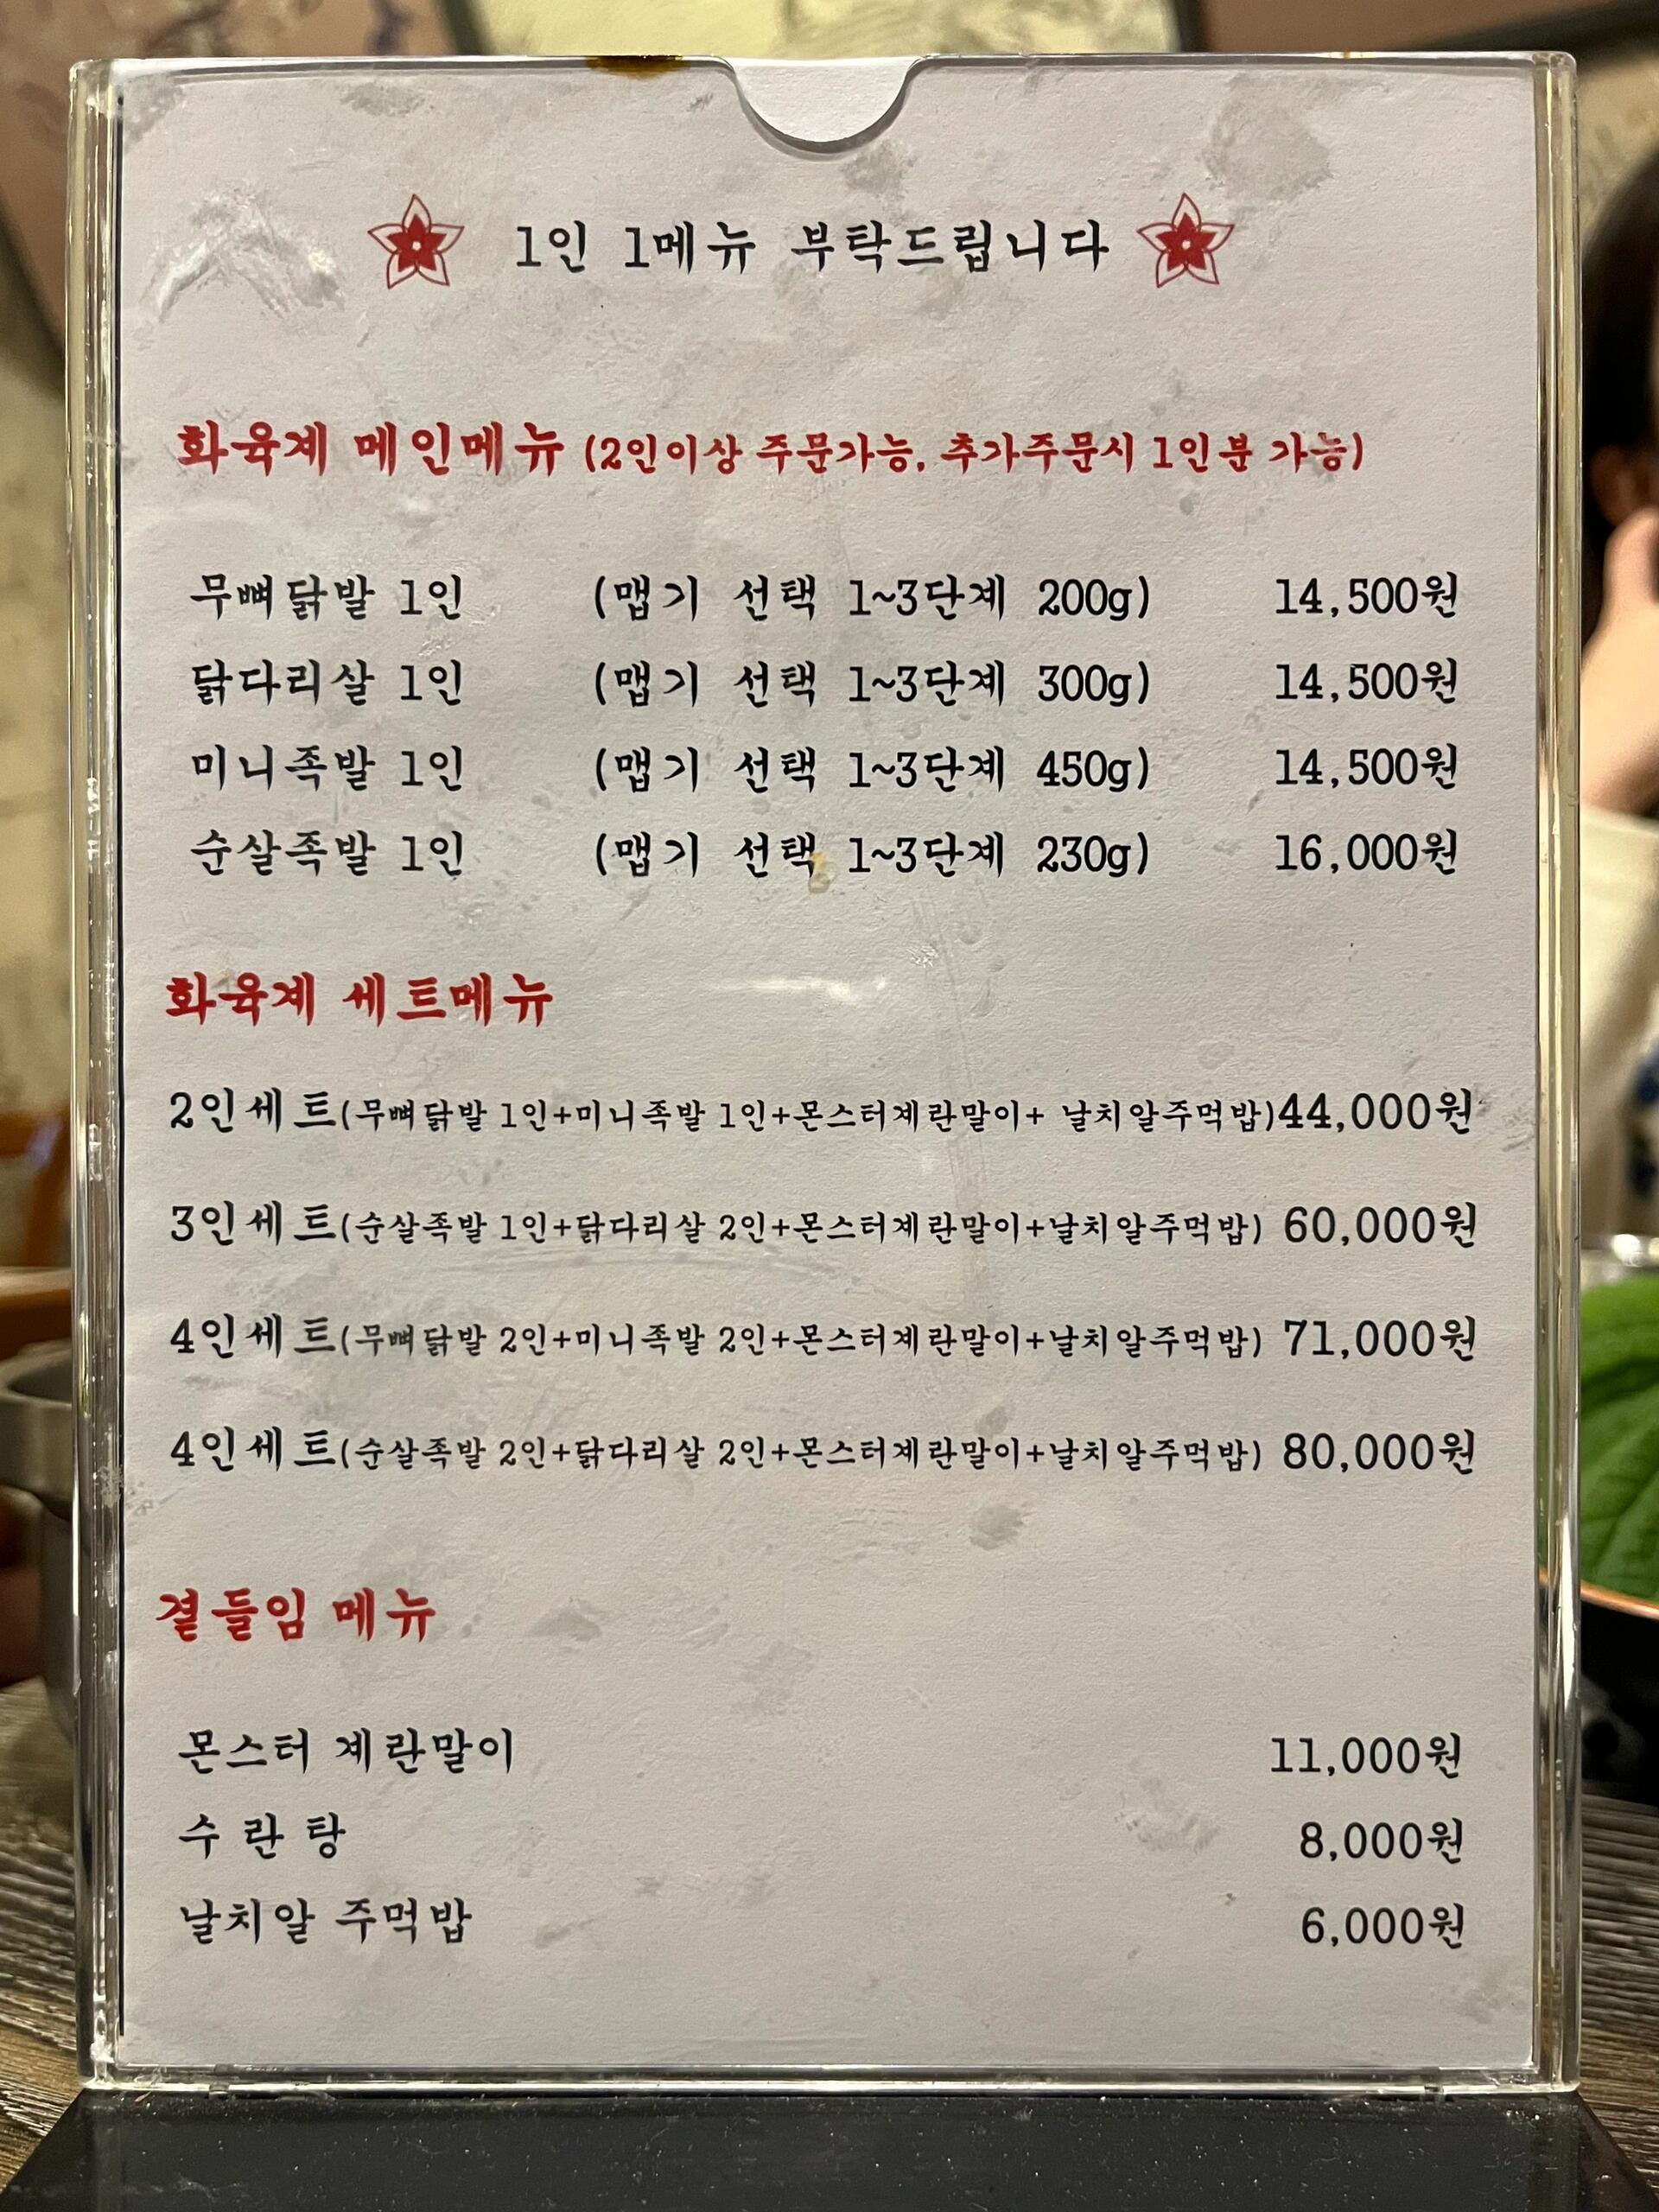 1인 1메뉴 부탁드립니다
화육계 메인메뉴 (2인이상 주문가능, 추가주문시 1인분 가능)
무뼈닭발 1인 (맵기 선택 1~3단계 200g) 14,500원
닭다리살 1인 (맵기 선택 1~3단계 300g) 14,500원
미니족발 1인 (맵기 선택 1~3단계 450g) 14,500원
순살족발 1인 (맵기 선택 1~3단계 230g) 16,000원
화육계 세트메뉴
2인세트(무뼈닭발 1인+미니족발 1인+몬스터계란말이+ 날치알주먹밥)44,000원
3인세트(순살족발 1인+닭다리살 2인+몬스터계란말이+날치알주먹밥) 60,000원
4인세트(무뼈닭발 2인+미니족발 2인+몬스터계란말이+날치알주먹밥) 71,000원
4인세트(순살족발 2인+닭다리살 2인+몬스터계란말이+날치알주먹밥) 80,000원
곁들임 메뉴
몬스터 계란말이 11,000원
수 란 탕 8,000원
날치알 주먹밥 6,000원